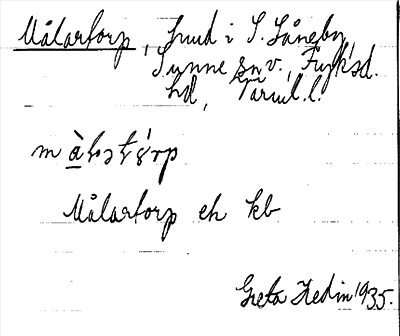 Målartorp, hmd i S. Låneby,
Sunne sn v., Fryksd.
hd, Värml. l.
Målartorp eh kb
Greta Hedin 1935.